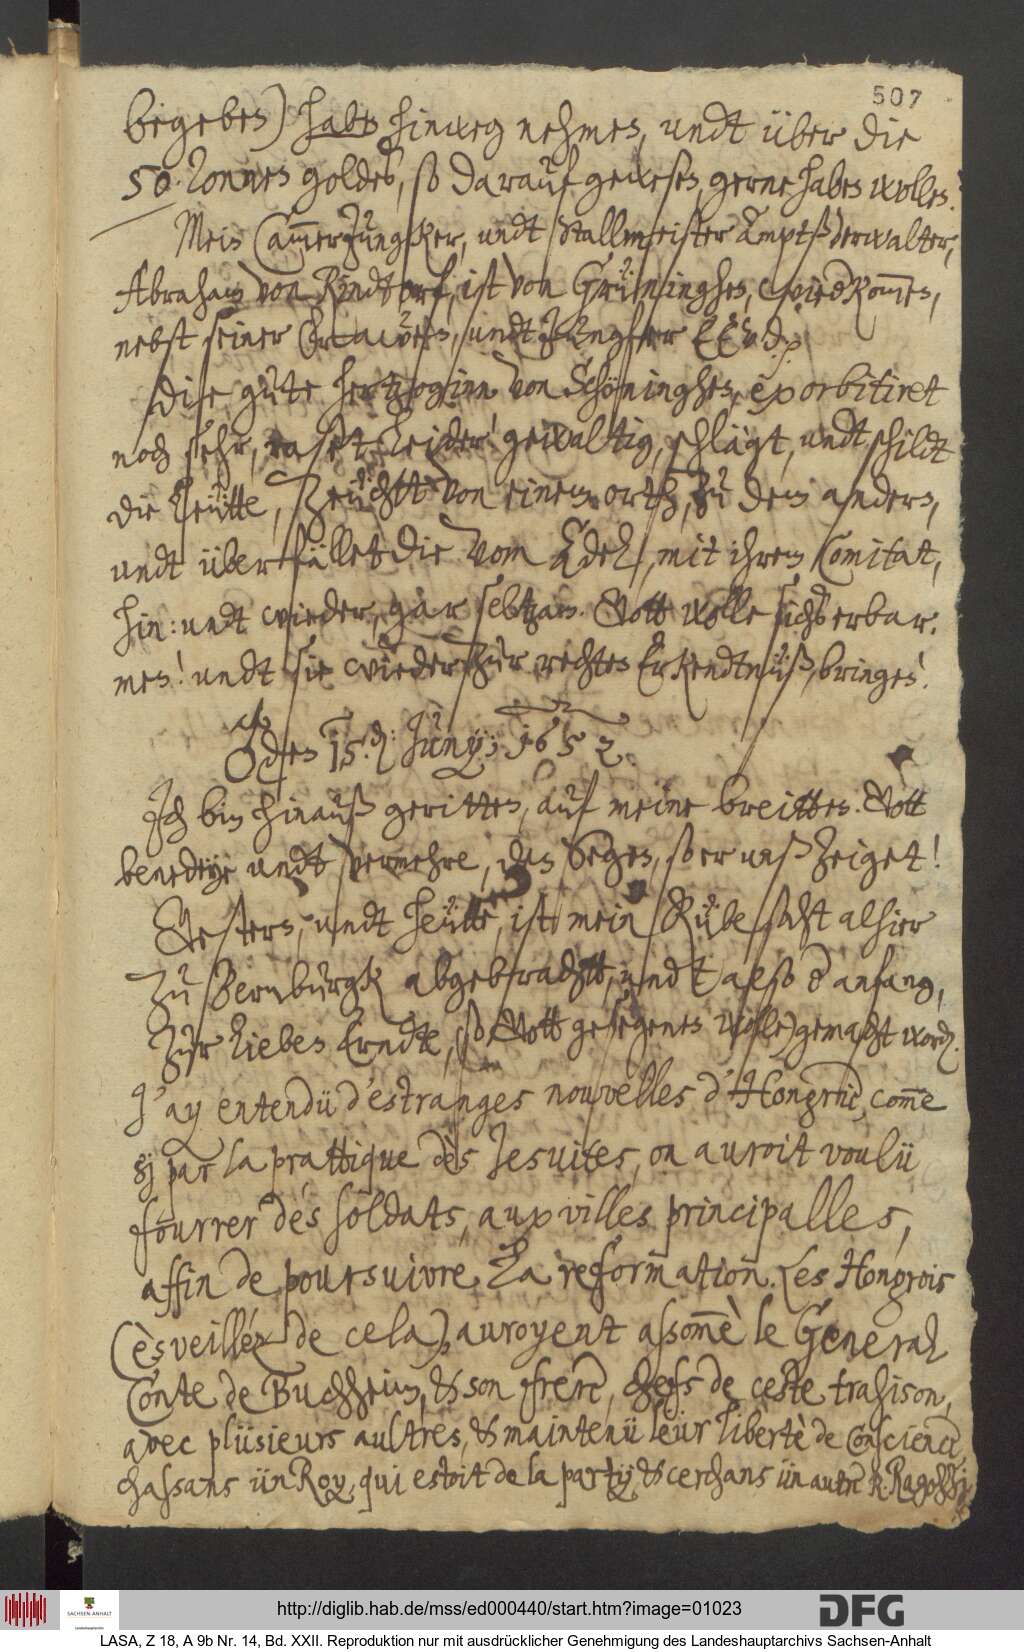 507
begeben) haben hinweg nehmen, undt über die
50 Tonnen goldeß, so darauf gewesen, gerne haben wollen.
Mein CammerJungker, undt Stallmeister Amptßverwalter,
Abraham von Rindtorf, ist von Grüningen, wiedkommen,
nebst seiner undt Jungfer
Dise gute hertzoginn von Schöninghen, exorbitiret
noch sehr, raset leider! gewaltig, schlägt, undt schildt
die Leütte, Zeüchtt von einem orth, zu dem andern,
undt überfället die vom Adel, mit ihrem Comitat,
hin: undt wieder, gar seltzam. Gott wolle sichs erbar,
men! undt sie wieder zur rechten Erkendtnüß, bringen!
den 15. Juny; 1652.
Ich bin hinauß geritten, auf meine breitten. Gott
benedeye undt vermehre, den Segen, so er unß zeiget!
Gestern, undt heütte, ist mein Rübesaht alhier
zu Bernburgk abgebrachtt, undt also d anfang,
zur lieben Erndte, (so Gott gesegenen wolle) gemacht word.
J'ay entendü d'estranges nouvelles d'Hongrie, comme
sj par la prattique dès Jesuites, on auroit voulü
fourrer dés soldats, aux villes principalles,
affin de poursuivre la reformation. Les Hongrois
(èsveilléz de cela), auroyent assommè le General
Conte de Buchheim, & son frere, chefs de ceste trahison,
avec plüsieurs aultres, & maintenü leür libertè de Conscience
chassans ün Roy, qui estoit de la partie, & cerchans ün autre R. Ragozzj
http://diglib.hab.de/mss/ed000440/start.htm?image=01023
SACHSEN-ANHALT
DFG
LASA, Z 18, A 9b Nr. 14, Bd. XXII. Reproduktion nur mit ausdrücklicher Genehmigung des Landeshauptarchivs Sachsen-Anhalt